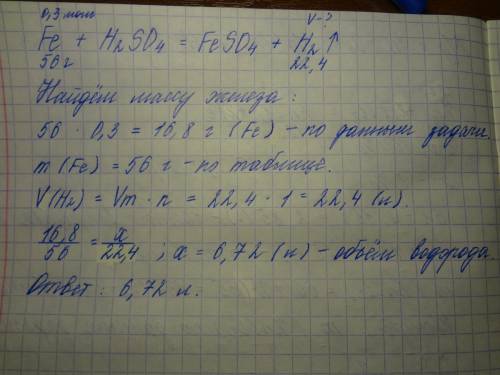 0,3 моль V-?
Fe + H₂SO₄ = FeSO₄ + H₂↑
56 г 22,4
Найдём массу железа:
56 · 0,3 = 16,8 г (Fe) - по данным задачи.
m (Fe) = 56 г - по таблице.
V(H₂) = Vm · n = 22,4 · 1 = 22,4 (л).
16,8/56 = x/22,4 ; x = 6,72 (л) - объём водорода.
Ответ: 6,72 л.